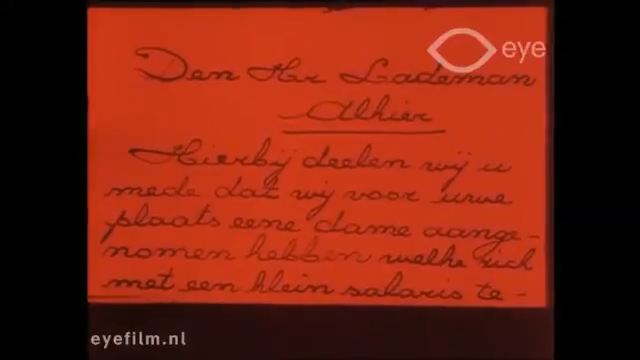 eye
Den Hr Lademan
Alhier
Hierbij deelen wij u
mede dat wij voor uwe
plaats eene dame aange-
nomen hebben welke zich
met een klein salaris te-
eyefilm.nl